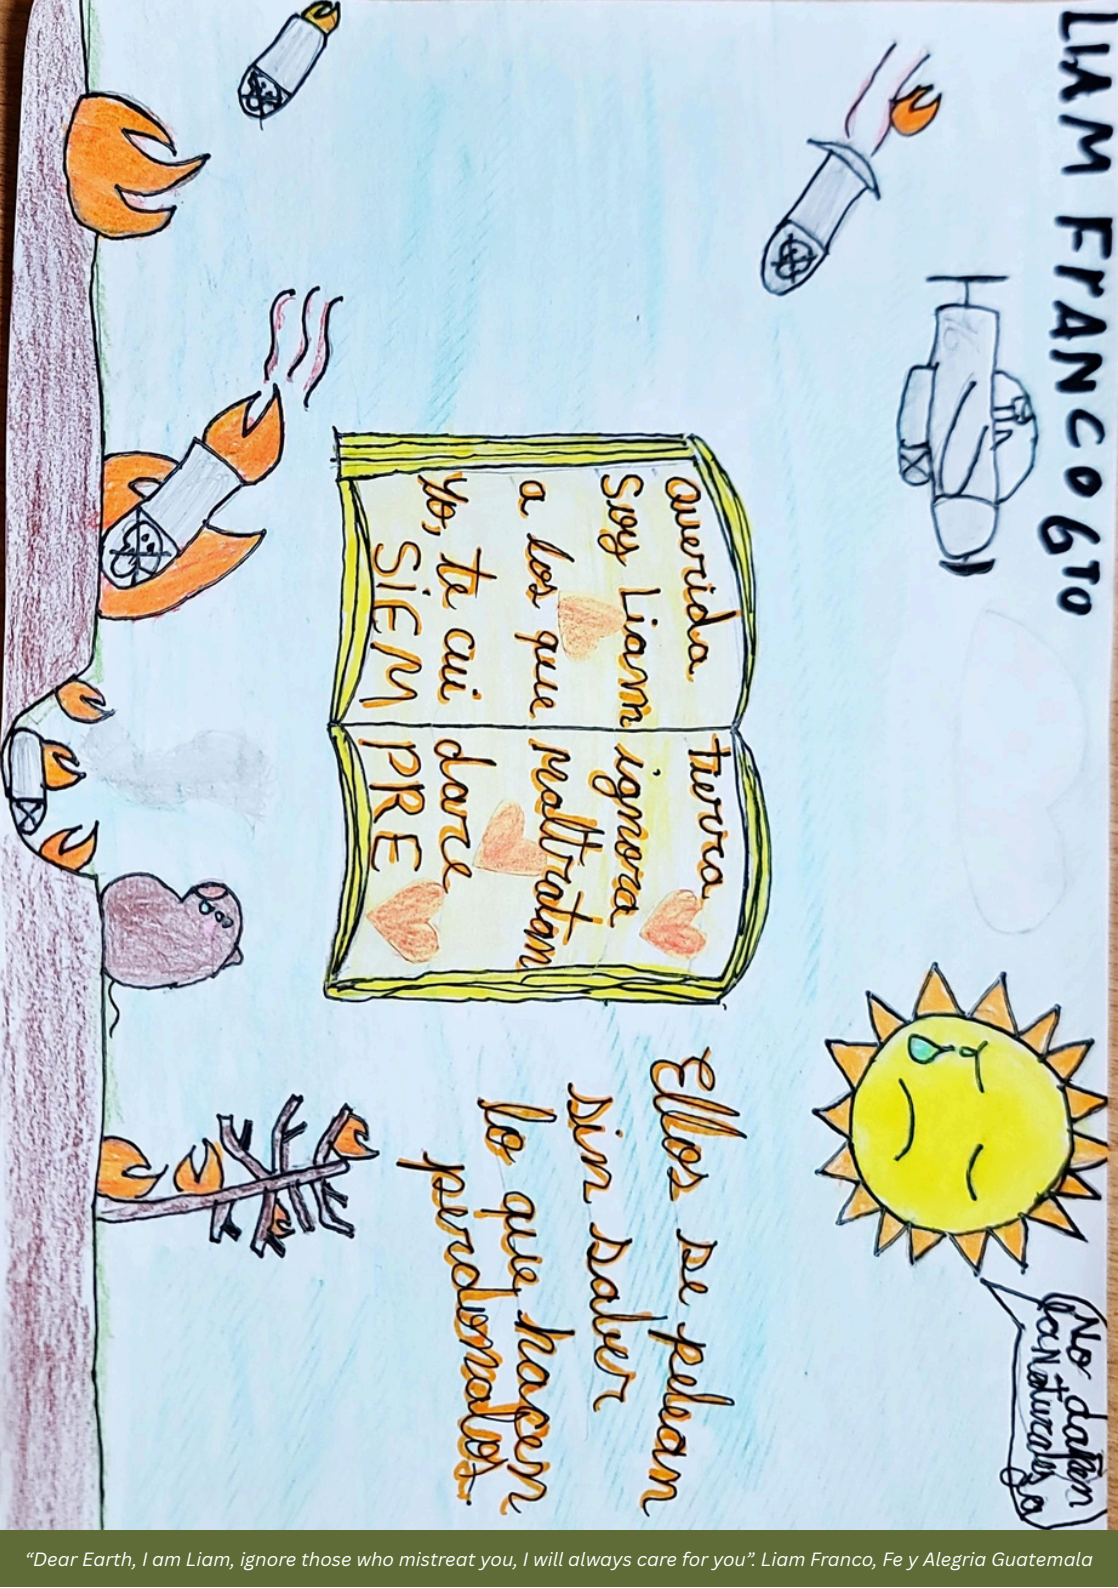 LIAM FRANCO 6TO
No dañen
la Naturaleza
querida tierra
Soy Liam ignora
a los que maltratan
Yo, te cui dare
SIEM PRE
Ellos se pelean
sin saber
lo que hacen
perdonalos
“Dear Earth, I am Liam, ignore those who mistreat you, I will always care for you”. Liam Franco, Fe y Alegria Guatemala